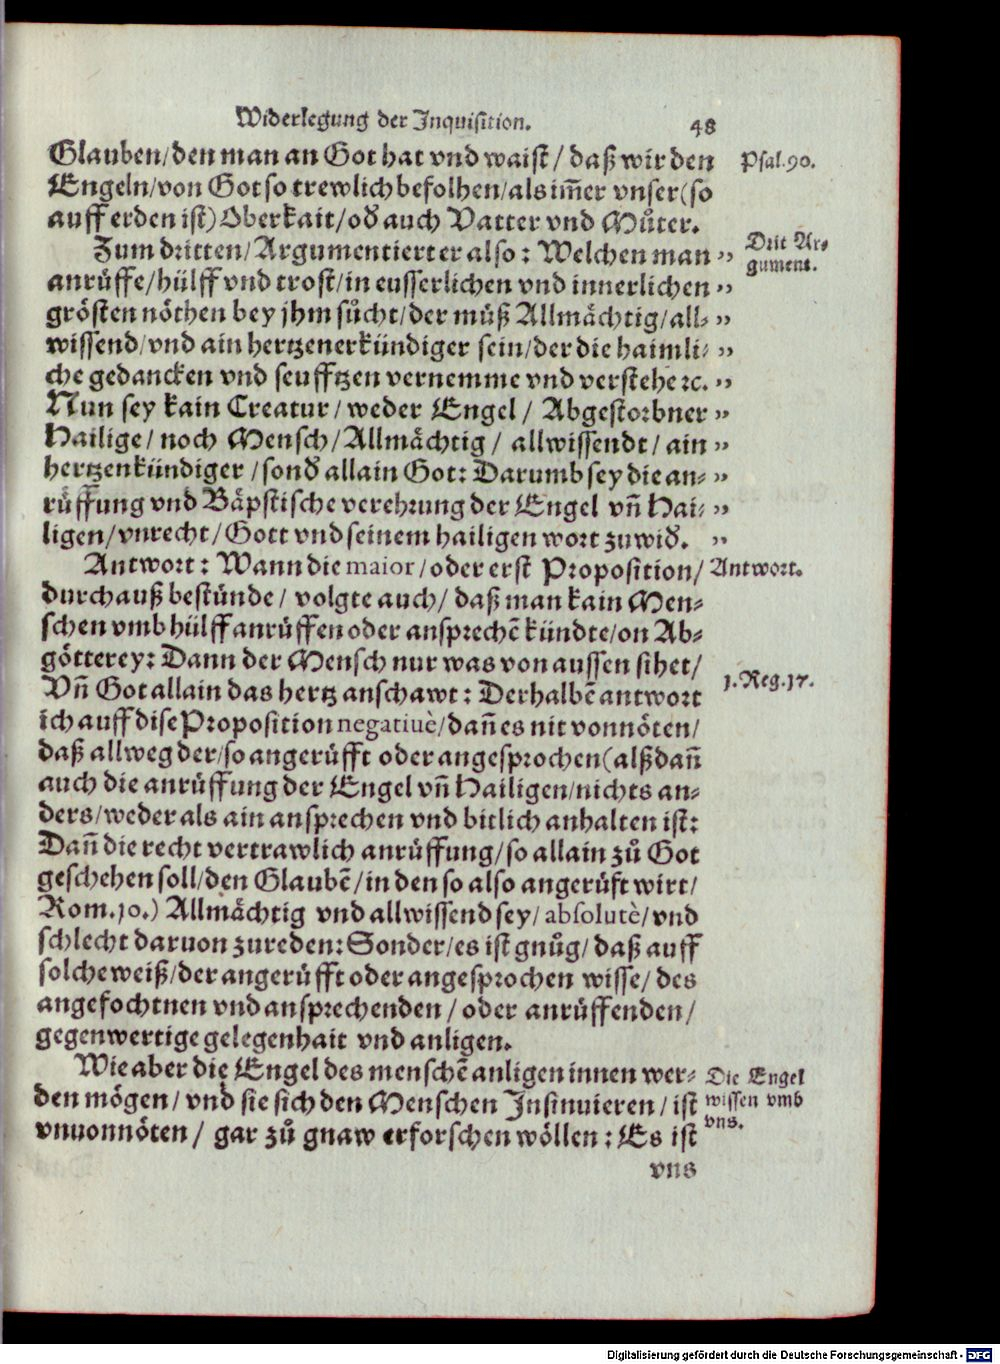 Widerlegung der Inquisition. 48
Glauben/den man an Got hat vnd waist/ daß wir den Psal.90.
Engeln/von Got so trewlich befolhen/als im̃er vnser(so
auff erden ist) Oberkait/od auch Vatter vnd Můter.
Zum dritten/Argumentiert er also: Welchen man ” Drit Ar-
anrůffe/hülff vnd trost/in eusserlichen vnd innerlichen ” gument.
grösten nöthen bey jhm sůcht/der můß Allmächtig/all- ”
wissend/vnd ain hertzenerkündiger sein/der die haimli- ”
che gedancken vnd seufftzen vernemme vnd verstehe ꝛc. ”
Nun sey kain Creatur/weder Engel/ Abgestorbner ”
Hailige/ noch Mensch/Allmächtig/ allwissendt/ ain ”
hertzenkündiger /sond allain Got: Darumb sey die an- ”
rüffung vnd Bäpstische verehrung der Engel vñ Hai- ”
ligen/vnrecht/Gott vnd seinem hailigen wort zuwid. ”
Antwort: Wann die maior/oder erst Proposition/ Antwort.
durchauß bestünde/ volgte auch/ daß man kain Men-
schen vmb hülff anrůffen oder ansprechẽ kündte/on Ab-
götterey: Dann der Mensch nur was von aussen sihet/
Vñ Got allain das hertz anschawt: Derhalbẽ antwort 1.Reg.17.
ich auff dise Proposition negatiuè/dañ es nit vonnöten/
daß allweg der/so angerůfft oder angesprochen(alß dañ
auch die anrůffung der Engel vñ Hailigen/nichts an-
ders/weder als ain ansprechen vnd bitlich anhalten ist:
Dañ die recht vertrawlich anrůffung/so allain zů Got
geschehen soll/den Glaubẽ/in den so also angerůft wirt/
Rom.10.) Allmächtig vnd allwissend sey/ absolutè/vnd
schlecht daruon zureden: Sonder/es ist gnůg/ daß auff
solche weiß/der angerůfft oder angesprochen wisse/ des
angefochtnen vnd ansprechenden / oder anrůffenden/
gegenwertige gelegenhait vnd anligen.
Wie aber die Engel des menschẽ anligen innen wer- Die Engel
den mögen/ vnd sie sich den Menschen Insinuieren/ ist wissen vmb
vnuonnöten/ gar zů gnaw erforschen wöllen: Es ist vns.
vns
Digitalisierung gefördert durch die Deutsche Forschungsgemeinschaft - DFG